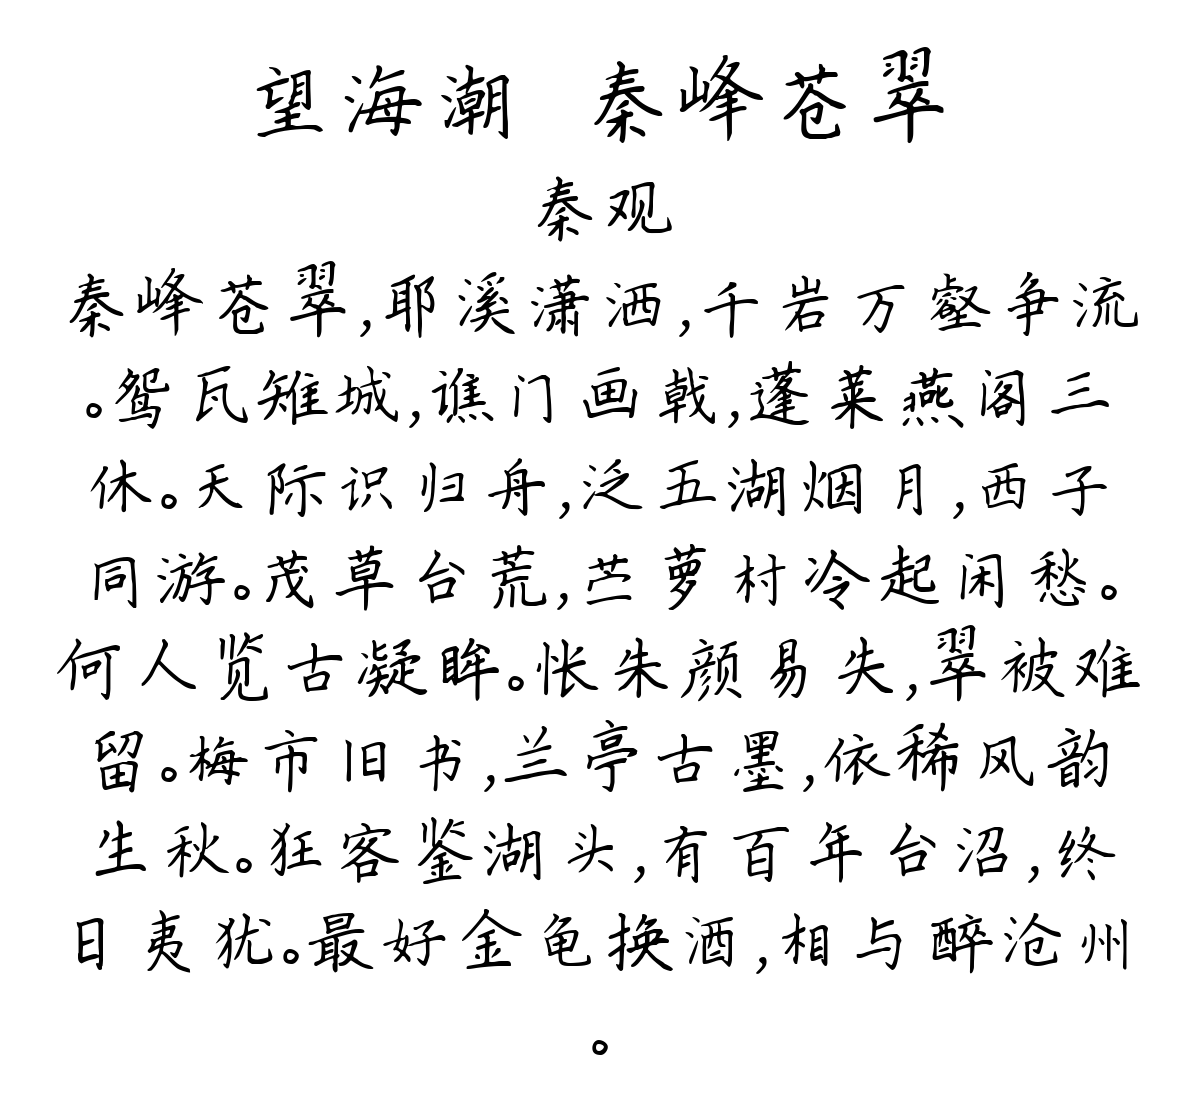 望海潮 秦峰苍翠
秦观
秦峰苍翠,耶溪潇洒,千岩万壑争流
。鸳瓦雉城,谯门画戟,蓬莱燕阁三
休。天际识归舟,泛五湖烟月,西子
同游。茂草台荒,苎萝村冷起闲愁。
何人览古凝眸。怅朱颜易失,翠被难
留。梅市旧书,兰亭古墨,依稀风韵
生秋。狂客鉴湖头,有百年台沼,终
日夷犹。最好金龟换酒,相与醉沧州
。